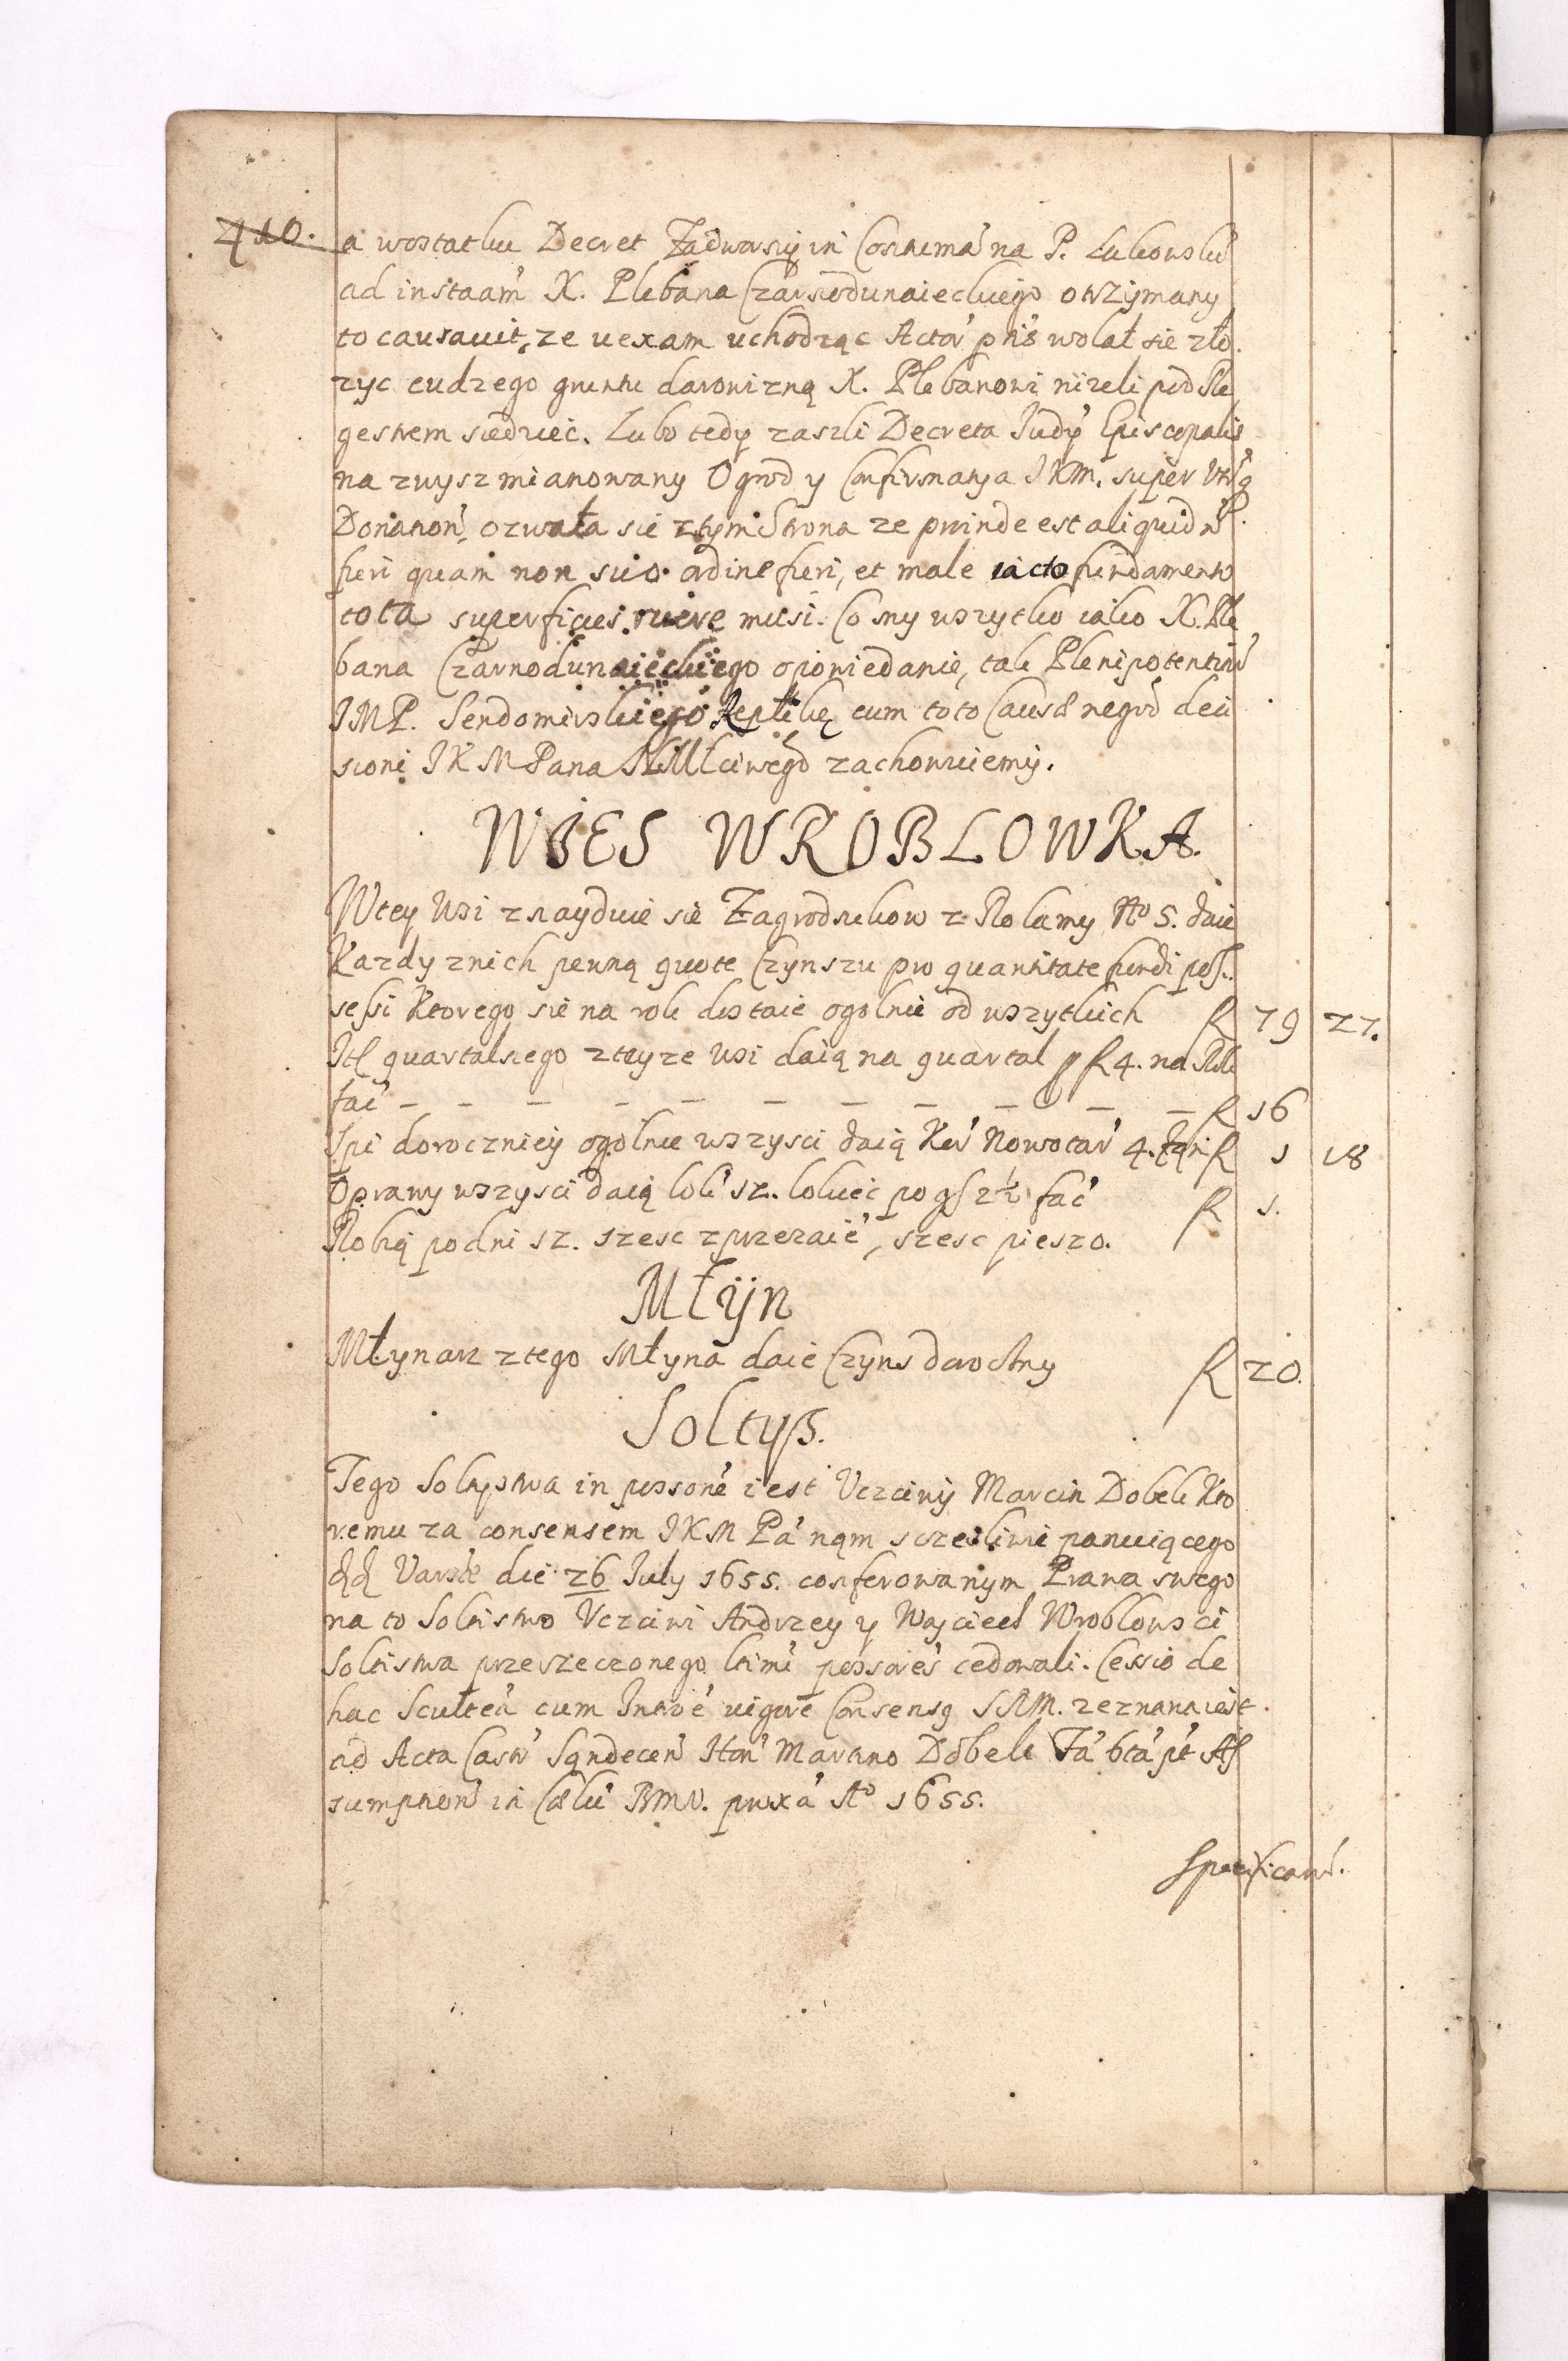 410.
a wostatku Decret Zadworny in Contuma na P. Lukowsku
ad instaam X. Plebana Czarnodunaieckiego otrzÿmany
to causavit, ze vexam uchodząc Actor pns wolał sie zło
zyc cudzego gruntu darowizną X. Plebanowi nizeli pod Re
gestrem siedziec. Lubo tedy zaszli Decreta Judÿ Episcopalis
na zwysz mianowany Ogrod y Confirmatya JKM. super
Donation, ozwała sie ztym Strona ze proinde est aliquid n
fieri quam non suo ordine fieri, et male iacto fundamento
tota superficies ruere musi. Co my wszytko iako X. Ple
bana Czarnodunaieckiego opowiedanie, tak Plenipotentiw
JMP. Sendomirskiego Replikę cum toto Causæ negod deci
sioni JKM Pana NMłciwego zachowuiemÿ.
WIES WROBLOWKA.
Wtey Wsi znayduie sie Zagrodnikow z Rolamy No 5. daie
Kazdy znich pewną quote Czynszu pro quantitate fundi pos
sessi Ktorego sie na rok dostaie ogolnie od wszytkich f 79 27.
Itẽ quartalnego zteyze Wsi daią na quartal p f 4. na Rok
fac – – – – – – – – – – – f 16
Spi doroczniey ogolnie wszysci daią Kor Nowotar 4. f 1 18
Oprawy wszysci daią lok sz. lokiec po gs 2½ fac f 1.
Robią po dni sz. szesc zprzezaie, szesc pieszo.
Młÿn
Młynarz ztego Młyna daie Czyns doroczny f 20.
Soltyß.
Tego Soltystwa in possone iest Uczciwÿ Marcin Dobek Kto
remu za consensem JKM Pa nąm sczesliwie panuiącego
Varsæ die 26 July 1655. conferowanym Prawa swego
na to Soltistwo Uczciwi Andrzey y Woyciech Wroblowsci
Soltistwa przerzeczonego ltimi possores cedowali. Cessio de
hac Scultea cum Intro vigore Consensq SRM. zeznana iest
ad Acta Castr Sąndecen Hon Martino Dobek Fa bta pt As
sumption in Cælu BMV. proxa Ao 1655.
Specificatio.